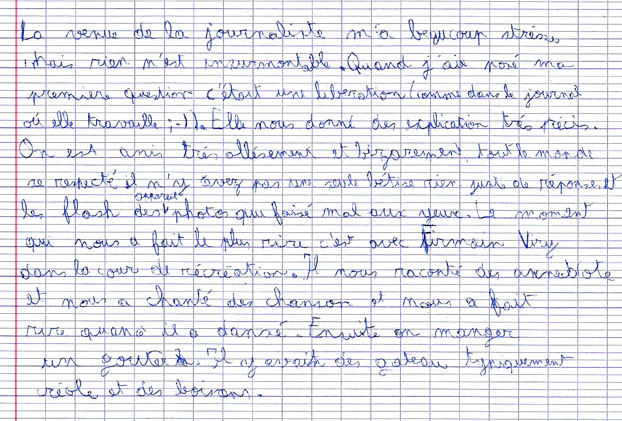 La venue de la journaliste m'a beaucoup stréssé
mais rien n'est insurmontable. Quand j'ais posé ma
première question c'était une liberation (comme dans le journal
où elle travaille ;-)). Elle nous donné des explication très précis.
On est anis très allèsement et bizarement, tout le monde
se respecté il n'y avez pas une seule bêtise rien juste de réponses et
les flash des appareils photos qui faisé mal aux yeux. Le moment
qui nous a fait le plus rire c'est avec Firmain Viry
dans la cour de récréation. Il nous raconté des annecdote
et nous a chanté des chanson et nous a fait
rire quand il a dansé. Ensuite on manger
un gouter. Il y avait des gateau typiquement
créole et des boisons.